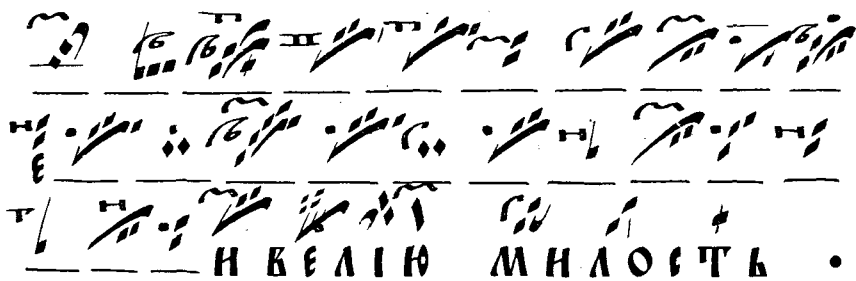 е
и велію милость .